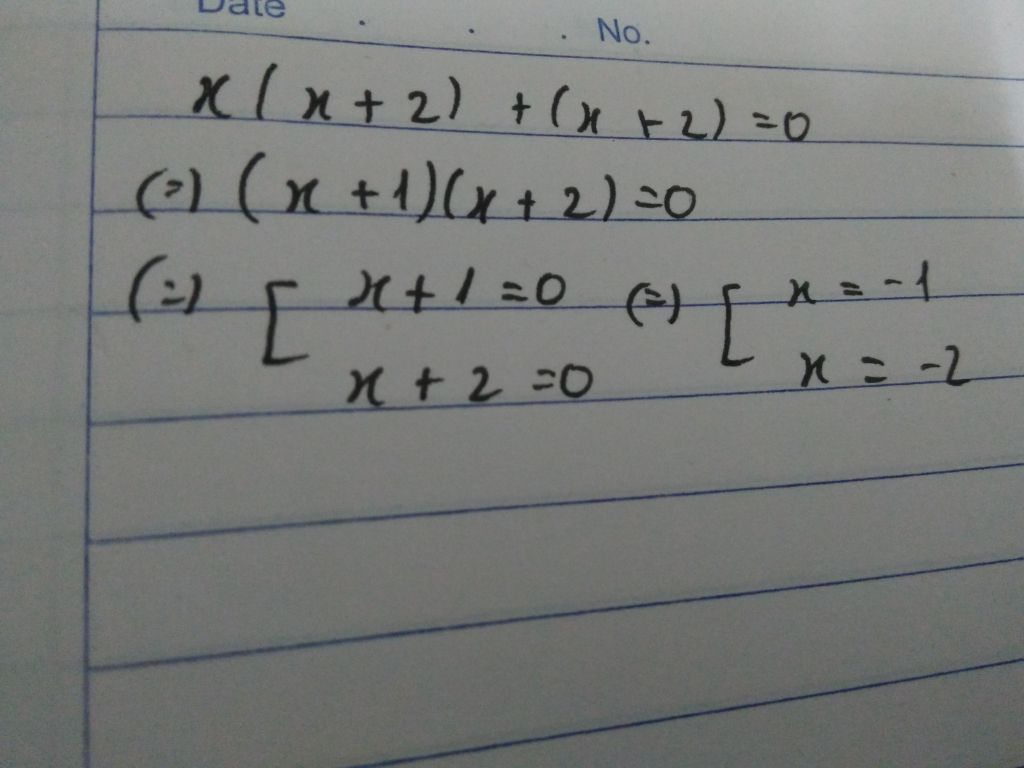 Date . . . No.
x(x+2) + (x+2) = 0
(=) (x+1)(x+2) = 0
(=) [ x+1 = 0 (=) [ x = -1
x+2 = 0 x = -2